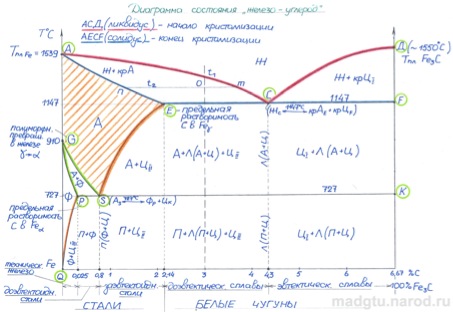 Диаграмма состояния "железо-углерод"
АСД (ликвидус) - начало кристализации
AECF (солидус) - конец кристализации
T°C
Tпл Fe = 1539
A
Д (~1550°C)
Tпл Fe3C
Ж
Ж + крА
Ж + крЦI
t1
t2
n
O
m
1147
E
C
1147
F
- предельная растворимость С в Feγ
А
910
G
полиморфн. превращ. в железе γ→α
А+Ф
А+ЦII
А+Л(А+Ц)+ЦII
Л(А+Ц)
ЦI+Л(А+Ц)
727
Ф
P
S
727
K
предельная растворимость С в Feα
Ф+ЦII
П+Ф
П(Ф+Ц)
П+ЦII
П+Л(П+Ц)+ЦII
Л(П+Ц)
ЦI+Л(П+Ц)
техническ. железо
Fe
Q
0,025
0,8
1
2
2,14
3
4
4,3
5
6
6,67 %C
100% Fe3C
доэвтектоидн. стали
заэвтектоидн. стали
доэвтектич. сплавы
заэвтектич. сплавы
СТАЛИ
БЕЛЫЕ ЧУГУНЫ
madgtu.narod.ru